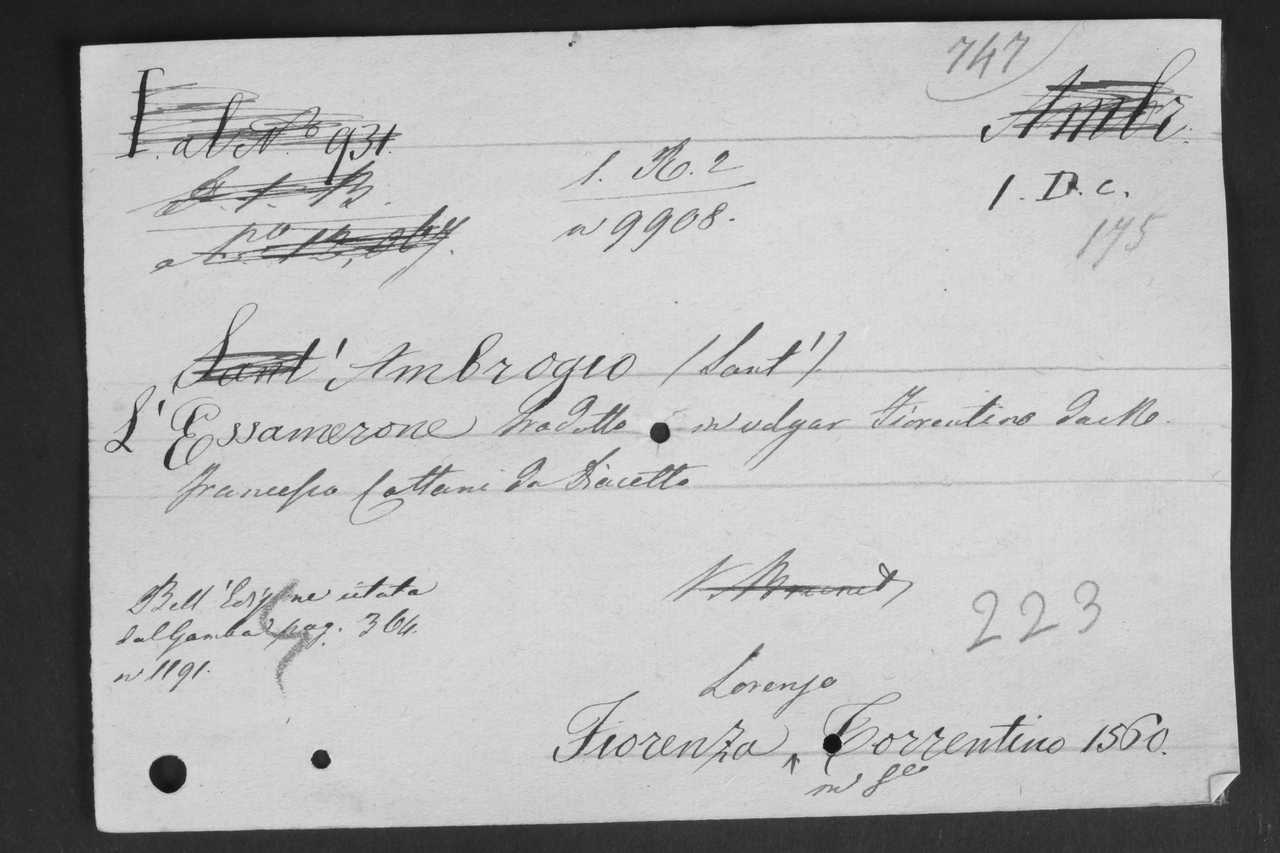 747
al N.º 931.
Ambr.
1. R. 2
1. D. c.
n 9908.
175
Sant' Ambrogio (Sant')
L'Essamerone tradotto in vulgar Fiorentino da
Francesco Cattani da Diacetto
Bell'Edizione citata
dal Gamba pag. 364.
n 1191.
V. Brunet
223
Lorenzo
Fiorenza, Torrentino 1560.
in 8º